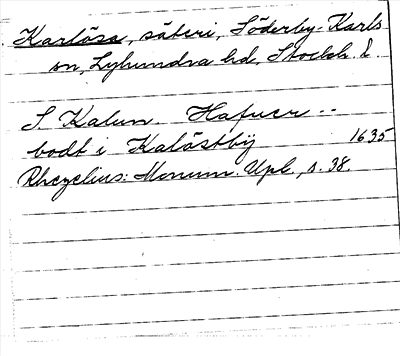 Karlösa, säteri, Söderby-Karls
sn, Lyhundra hd, Stockh. l.
S. Kalun. Hafuer..
bodt i Kalöstbÿ 1635
Rhezelius: Monum. Upl., s. 38.